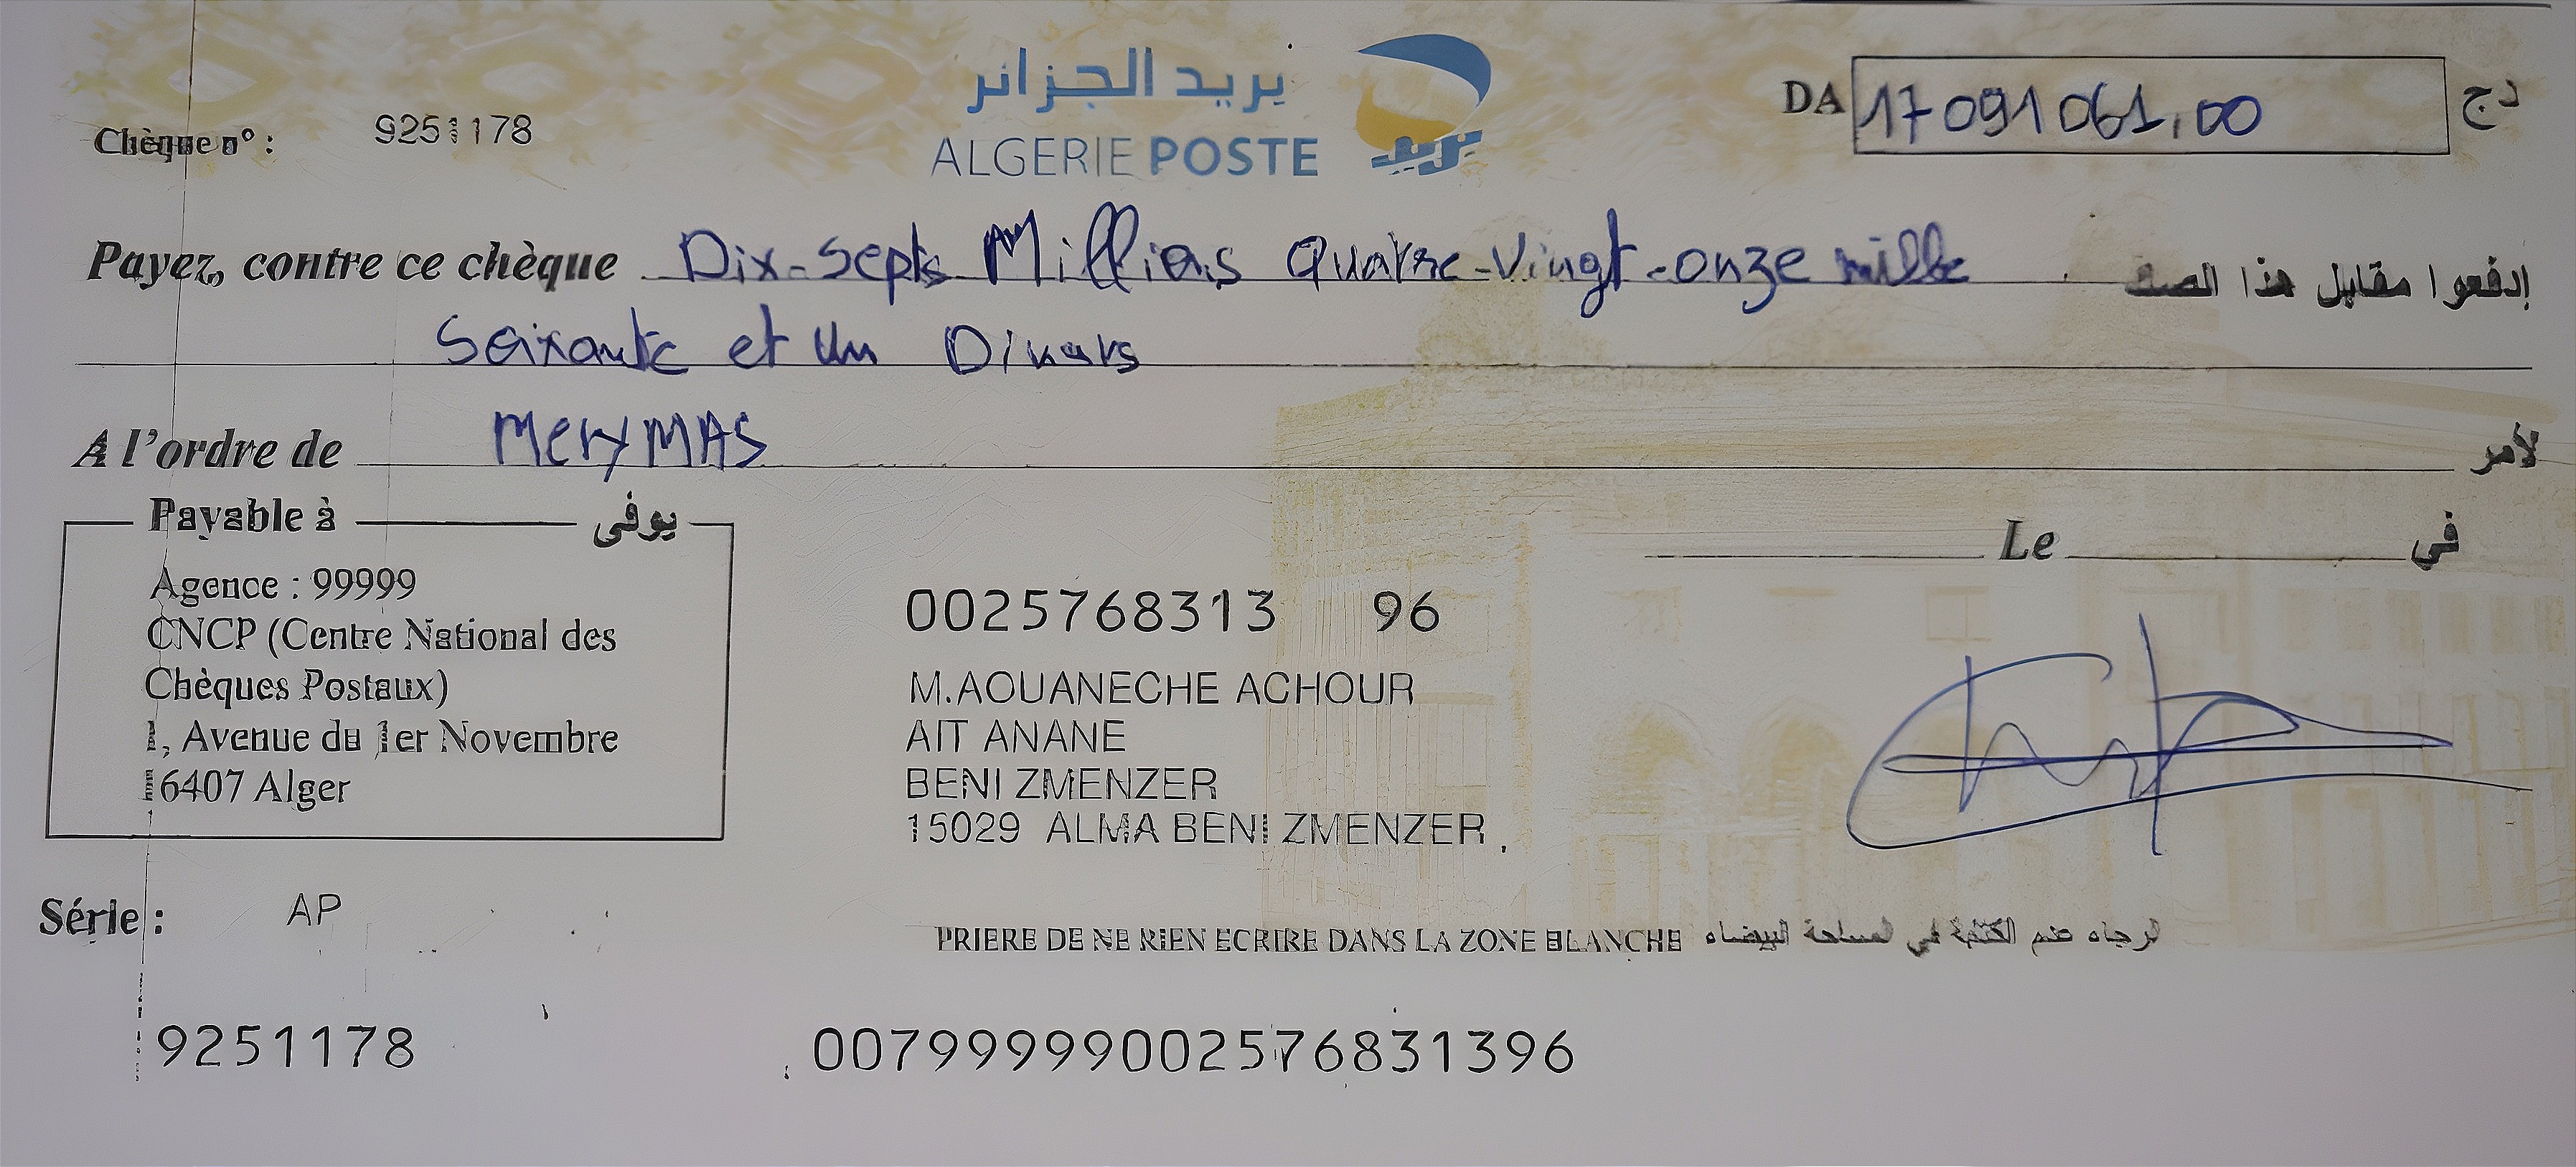 بريد الجزائر
ALGERIE POSTE
بريد
Chèque n° : 9251178
DA 17 091 061,00 دج
Payez, contre ce chèque Dix-Septs Millions Quatre-Vingt-onze mille إدفعوا مقابل هذا الصك
Soixante et un Dinars
A l'ordre de MeryMAS لأمر
Payable à يوفى
Le في
Agence : 99999
CNCP (Centre National des
Chèques Postaux)
1, Avenue du 1er Novembre
16407 Alger
0025768313 96
M.AOUANECHE ACHOUR
AIT ANANE
BENI ZMENZER
15029 ALMA BENI ZMENZER
Série : AP
PRIERE DE NE RIEN ECRIRE DANS LA ZONE BLANCHE الرجاء عدم الكتابة في المساحة البيضاء
9251178
00799999002576831396